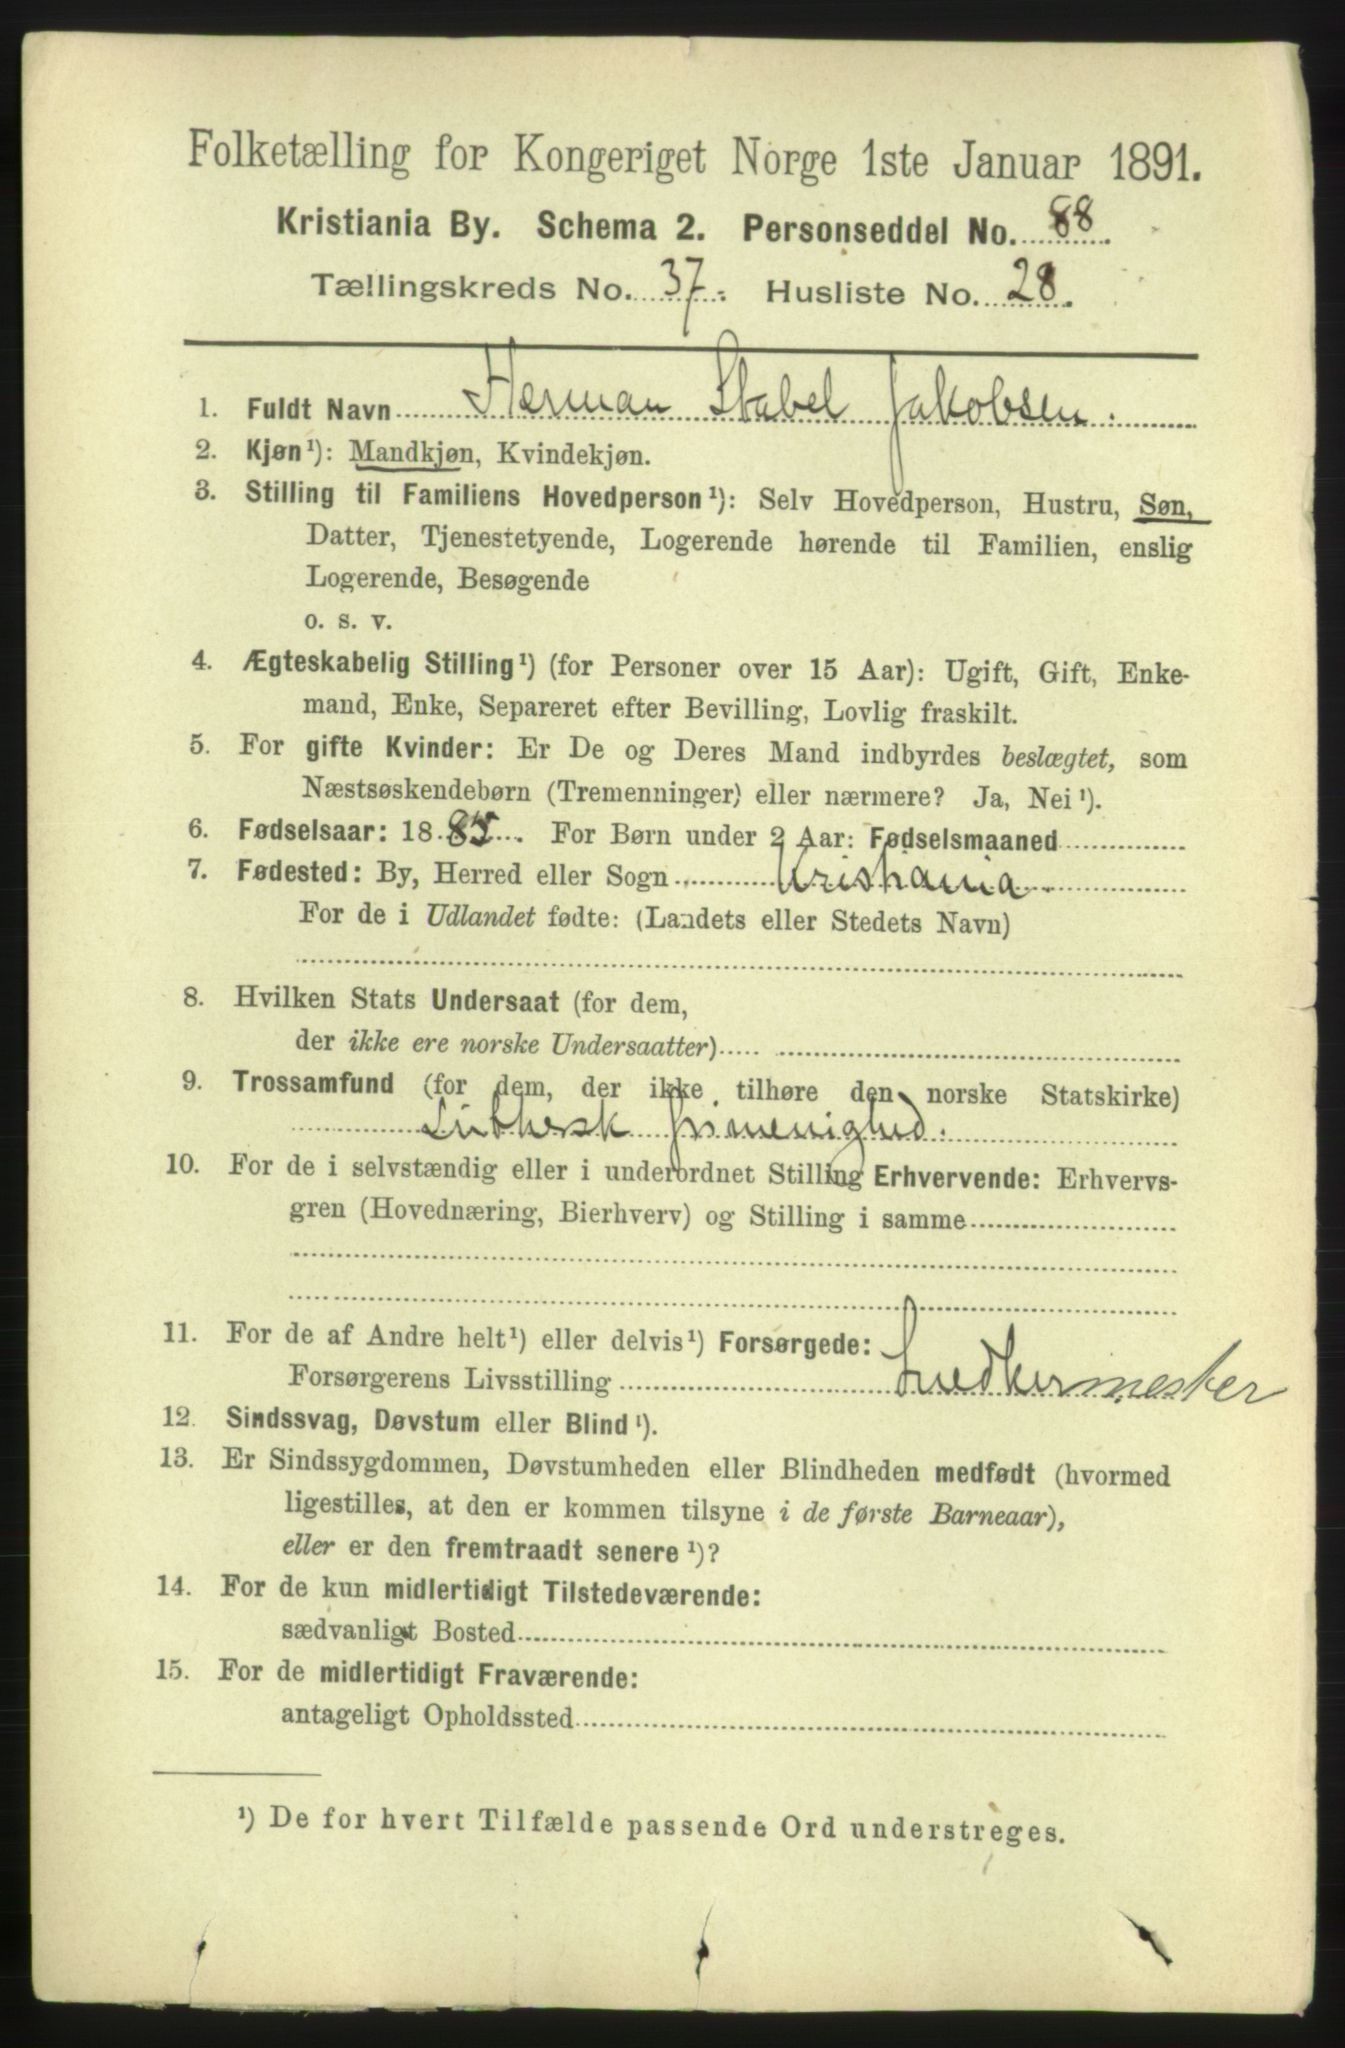 Folketælling for Kongeriget Norge 1ste Januar 1891.
Kristiania By. Schema 2. Personseddel No. 88.
Tællingskreds No. 37. Husliste No. 28.
1. Fuldt Navn Herman Stabel Jakobsen.
2. Kjøn¹): Mandkjøn, Kvindekjøn.
3. Stilling til Familiens Hovedperson¹): Selv Hovedperson, Hustru, Søn,
Datter, Tjenestetyende, Logerende hørende til Familien, enslig
Logerende, Besøgende
o. s. v.
4. Ægteskabelig Stilling¹) (for Personer over 15 Aar): Ugift, Gift, Enke-
mand, Enke, Separeret efter Bevilling, Lovlig fraskilt.
5. For gifte Kvinder: Er De og Deres Mand indbyrdes beslægtet, som
Næstsøskendebørn (Tremenninger) eller nærmere? Ja, Nei¹).
6. Fødselsaar: 1885. For Børn under 2 Aar: Fødselsmaaned
7. Fødested: By, Herred eller Sogn Kristiania.
For de i Udlandet fødte: (Landets eller Stedets Navn)
8. Hvilken Stats Undersaat (for dem,
der ikke ere norske Undersaatter)
9. Trossamfund (for dem, der ikke tilhøre den norske Statskirke)
Luthersk frimenighed.
10. For de i selvstændig eller i underordnet Stilling Erhvervende: Erhvervs-
gren (Hovednæring, Bierhverv) og Stilling i samme
11. For de af Andre helt¹) eller delvis¹) Forsørgede:
Forsørgerens Livsstilling Snedkermester
12. Sindssvag, Døvstum eller Blind¹).
13. Er Sindssygdommen, Døvstumheden eller Blindheden medfødt (hvormed
ligestilles, at den er kommen tilsyne i de første Barneaar),
eller er den fremtraadt senere¹)?
14. For de kun midlertidigt Tilstedeværende:
sædvanligt Bosted
15. For de midlertidigt Fraværende:
antageligt Opholdssted
¹) De for hvert Tilfælde passende Ord understreges.